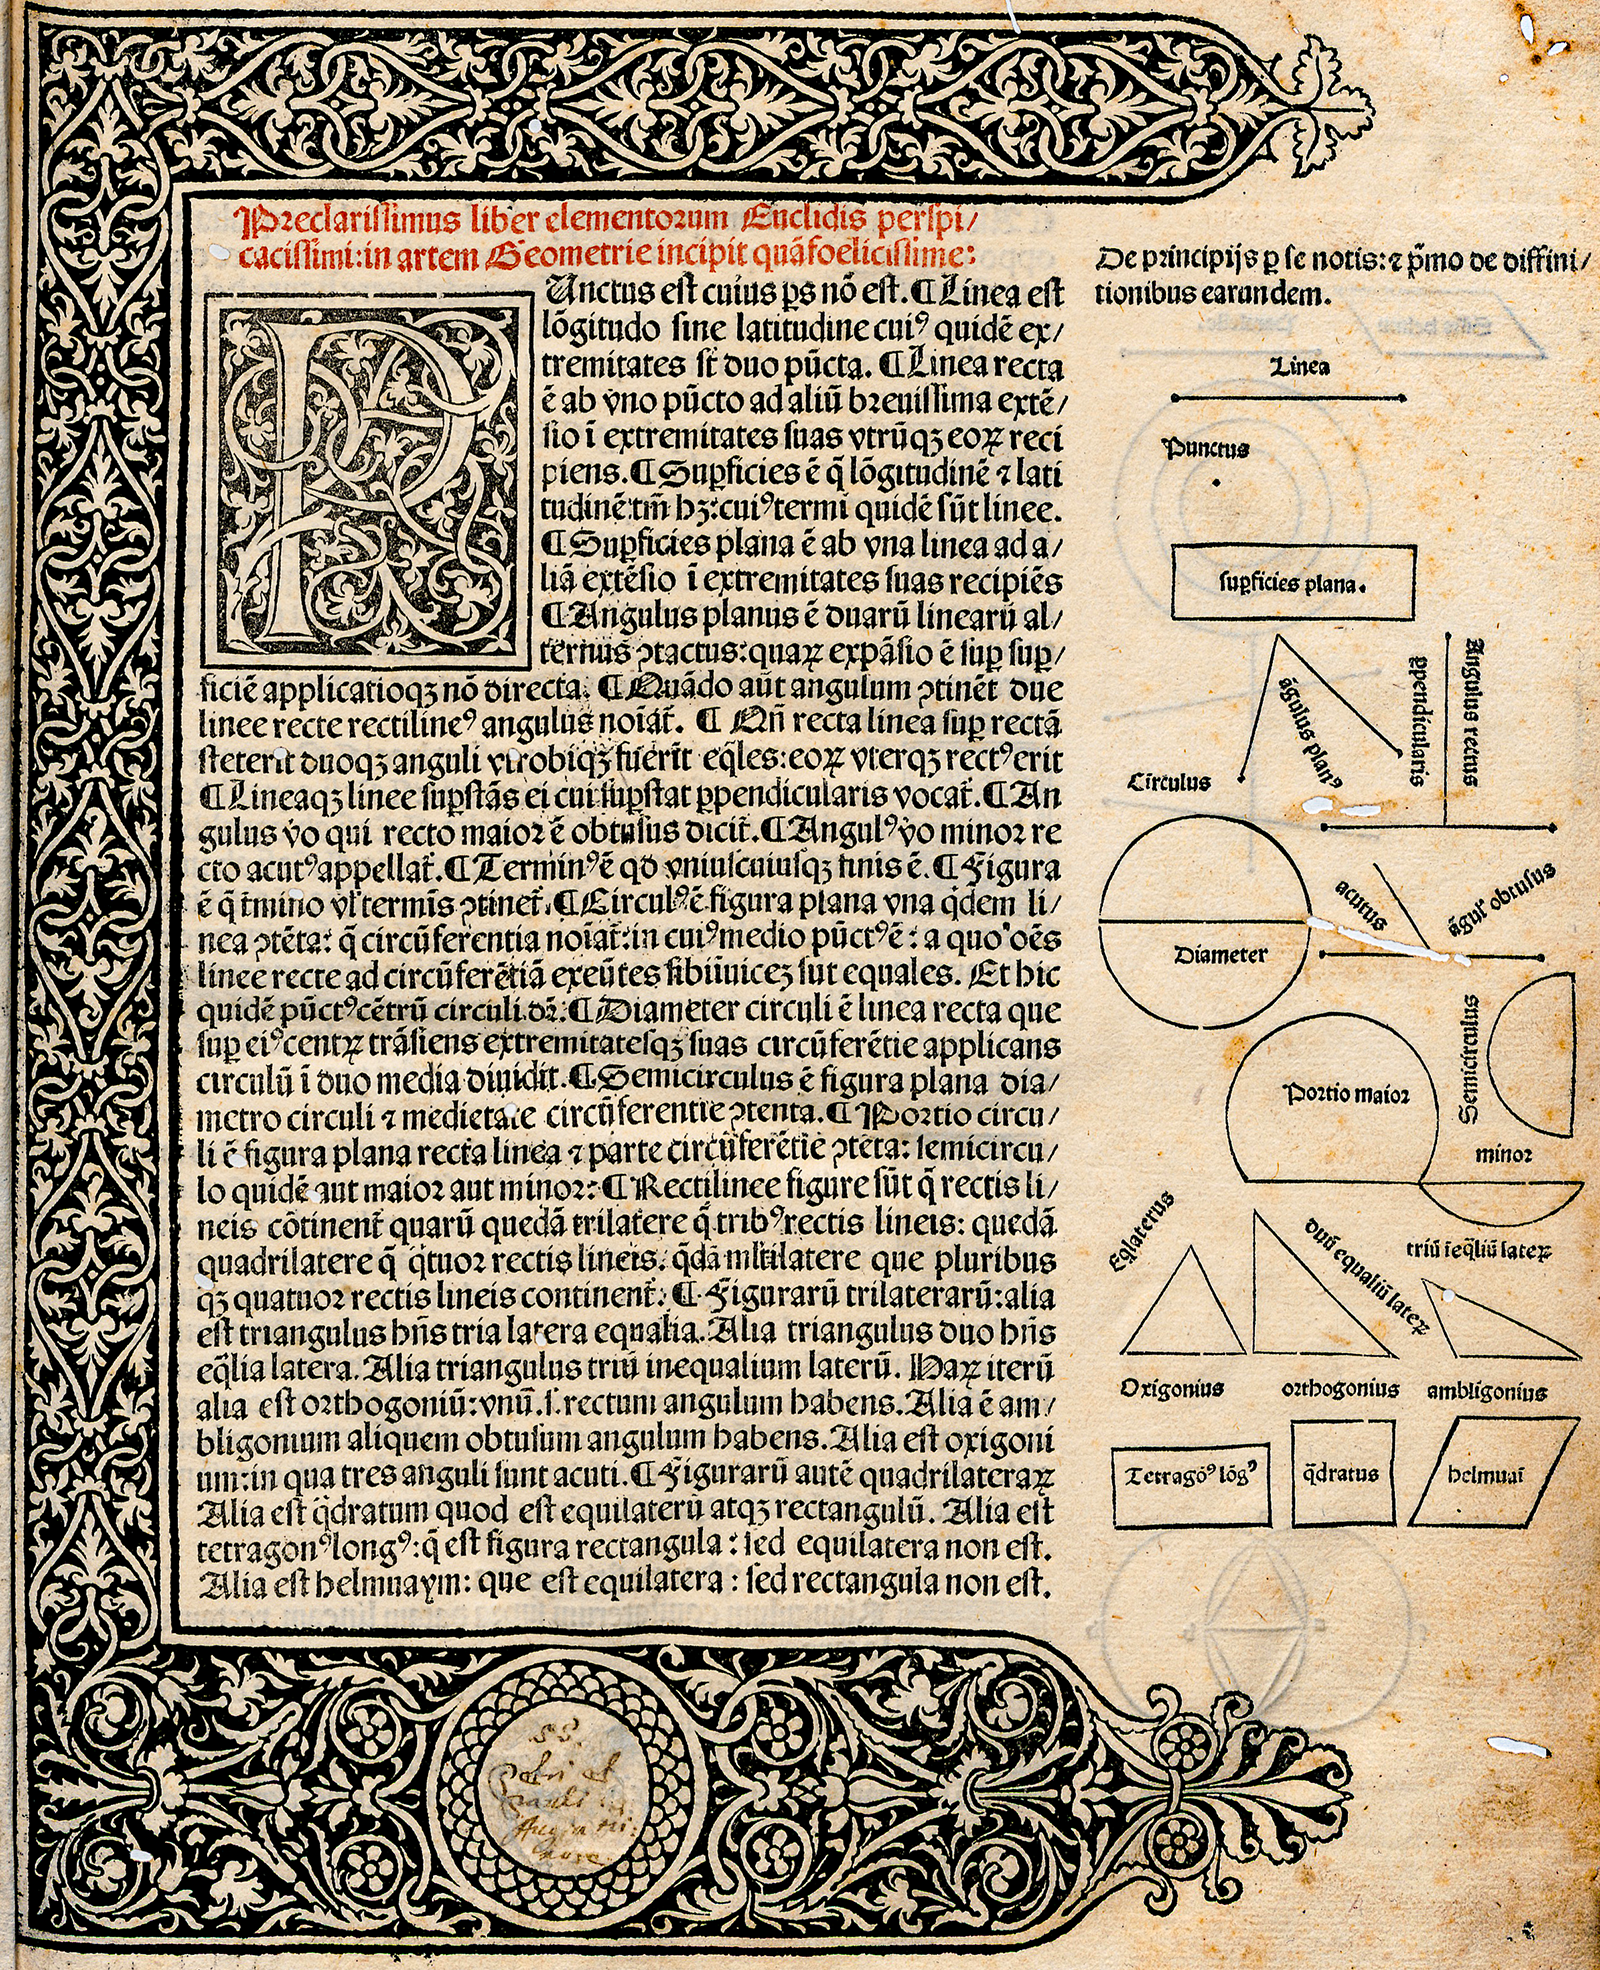 Preclarissimus liber elementorum Euclidis perspi/
cacissimi: in artem Geometrie incipit quāfoelicissime:
PUnctus est cuius ps nō est. ¶ Linea est
lōgitudo sine latitudine cuiꝰ quidē ex/
tremitates st duo pūcta. ¶ Linea recta
ē ab vno pūcto ad aliū breuissima extē/
sio ī extremitates suas vtrūqꝫ eoꝝ reci
piens. ¶ Supficies ē q̄ lōgitudinē ⁊ lati
tudinē tm̄ hꝫ: cuiꝰ termi quidē sūt linee.
¶ Supficies plana ē ab vna linea ad a/
liā extēsio ī extremitates suas recipiēs
¶ Angulus planus ē duarū linearū al/
ternus ꝯtactus: quaꝝ expāsio ē sup sup/
ficiē applicatioqꝫ nō directa. ¶ Quādo aūt angulum ꝯtinēt due
linee recte rectilineꝰ angulus noīat̄. ¶ Qn̄ recta linea sup rectā
steterit duoqꝫ anguli vtrobiqꝫ fuerīt eq̄les: eoꝝ vterqꝫ rectꝰ erit
¶ Lineaqꝫ linee supstās ei cui supstat ppendicularis vocat̄. ¶ An
gulus v̄o qui recto maior ē obtusus dicit̄. ¶ Angulꝰ v̄o minor re
cto acutꝰ appellat̄. ¶ Terminꝰ ē qd vniuscuiusqꝫ finis ē. ¶ Figura
ē q̄ t̄mino vl̄ termīs ꝯtinet̄. ¶ Circulꝰ ē figura plana vna q̄dem li/
nea ꝯtēta: q̄ circūferentia noīat̄: in cuiꝰ medio pūctꝰ ē: a quo oēs
linee recte ad circūferētiā exeūtes sibiīuiceꝫ sut equales. Et hic
quidē pūctꝰ cētrū circuli dr̄: ¶ Diameter circuli ē linea recta que
sup eiꝰ centꝝ trāsiens extremitatesqꝫ suas circūferētie applicans
circulū ī duo media diuidit. ¶ Semicirculus ē figura plana dia/
metro circuli ⁊ medietate circūferentie ꝯtenta. ¶ Portio circu/
li ē figura plana recta linea ⁊ parte circūferētie ꝯtēta: semicircu/
lo quidē aut maior aut minor: ¶ Rectilinee figure sūt q̄ rectis li/
neis cōtinent̄ quarū quedā trilatere q̄ tribꝰ rectis lineis: quedā
quadrilatere q̄ q̄tuor rectis lineis. q̄dā ml̄tilatere que pluribus
qꝫ quatuor rectis lineis continent̄. ¶ Figurarū trilaterarū: alia
est triangulus hn̄s tria latera equalia. Alia triangulus duo hn̄s
eq̄lia latera. Alia triangulus triū inequalium laterū. Haꝝ iterū
alia est orthogoniū: vnū .s. rectum angulum habens. Alia ē am/
bligonium aliquem obtusum angulum habens. Alia est oxigoni
um: in qua tres anguli sunt acuti. ¶ Figurarū autē quadrilateraꝝ
Alia est q̄dratum quod est equilaterū atqꝫ rectangulū. Alia est
tetragonꝰ longꝰ: q̄ est figura rectangula: sed equilatera non est.
Alia est helmuaym: que est equilatera: sed rectangula non est.
De principijs p se notis: ⁊ p̄mo de diffini/
tionibus earundem.
Linea
Punctus
supficies plana.
āgulus planꝰ
ppendicularis
Angulus rectus
Cīrculus
Diameter
acutus
āgul' obtusus
Semicirculus
Portio maior
minor
Eq̄laterus
duū equaliū lateꝝ
triū īeq̄liū lateꝝ
Oxigonius
orthogonius
ambligonius
Tetragōꝰ lōgꝰ
q̄dratus
helmuaī